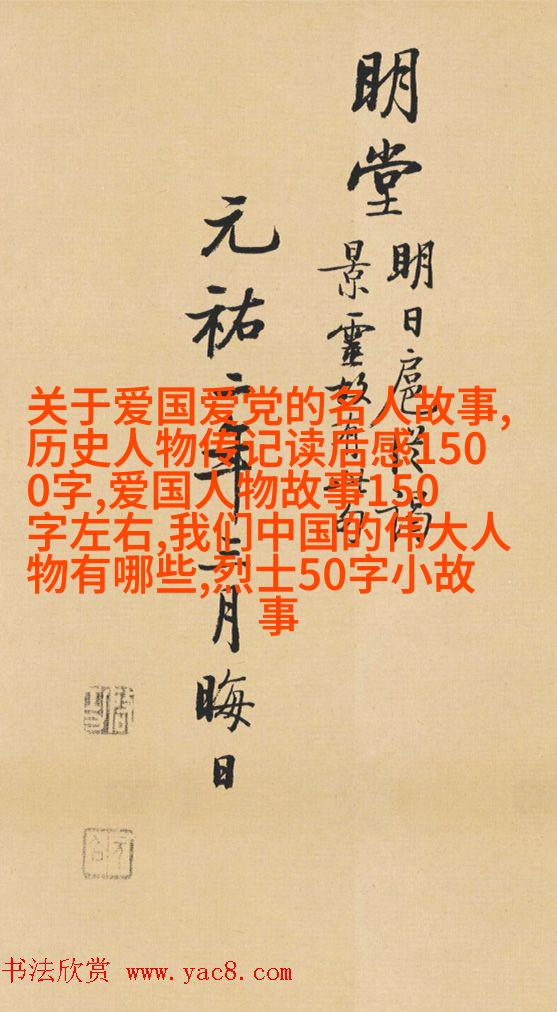 明堂
明日扈從謁
景靈故有此句
元祐二年三月晦日
关于爱国爱党的名人故事,
历史人物传记读后感150
0字,爱国人物故事150
字左右,我们中国的伟大人
物有哪些,烈士50字小故
事
书法欣赏 www.yac8.com